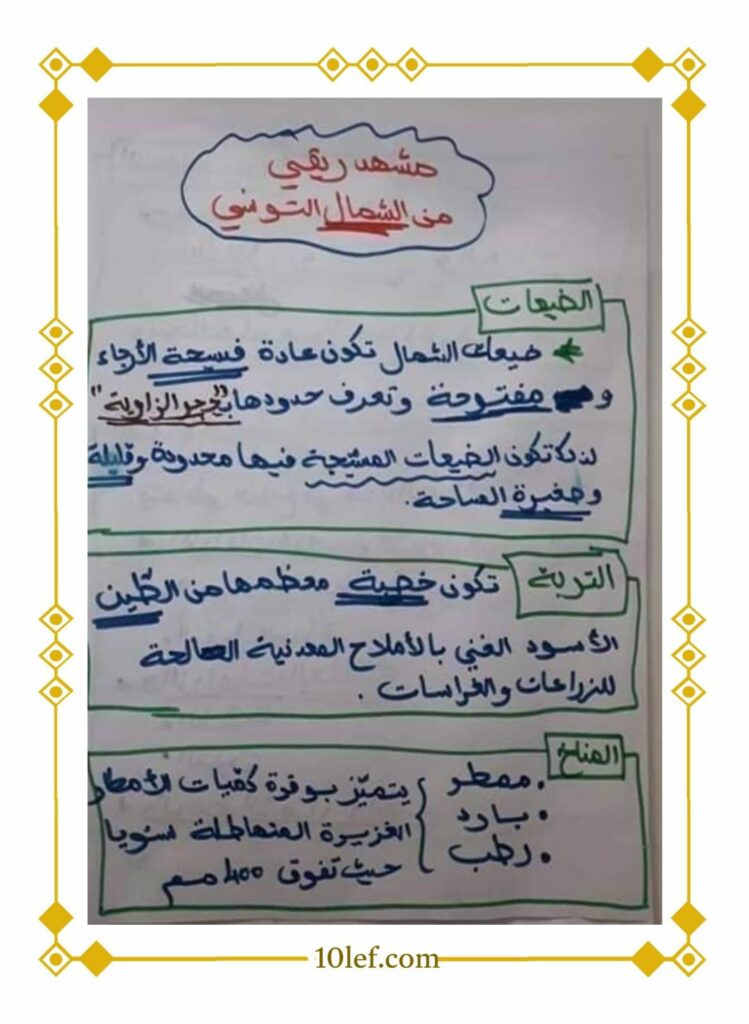 مشهد ريفي
من الشمال التونسي
الضيعات
ضيعات الشمال تكون عادة فسيحة الأرجاء
و مفتوحة وتعرف حدودها بـ"حجر الزاوية"
لذلك تكون الضيعات المسيّجة فيها محدودة وقليلة
وصغيرة المساحة.
التربة
تكون خصبة معظمها من الطّين
الأسود الغني بالأملاح المعدنية الصالحة
للزراعات والغراسات.
المناخ
• ممطر
• بارد
• رطب
يتميّز بوفرة كمّيات الأمطار
الغزيرة المتهاطلة سنويا
حيث تفوق 400 مم
10lef.com